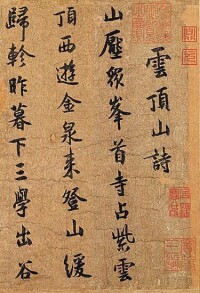 雲頂山詩
山壓眾峯首寺占紫雲
頂西遊金泉來登山緩
歸軫昨暮下三學出谷